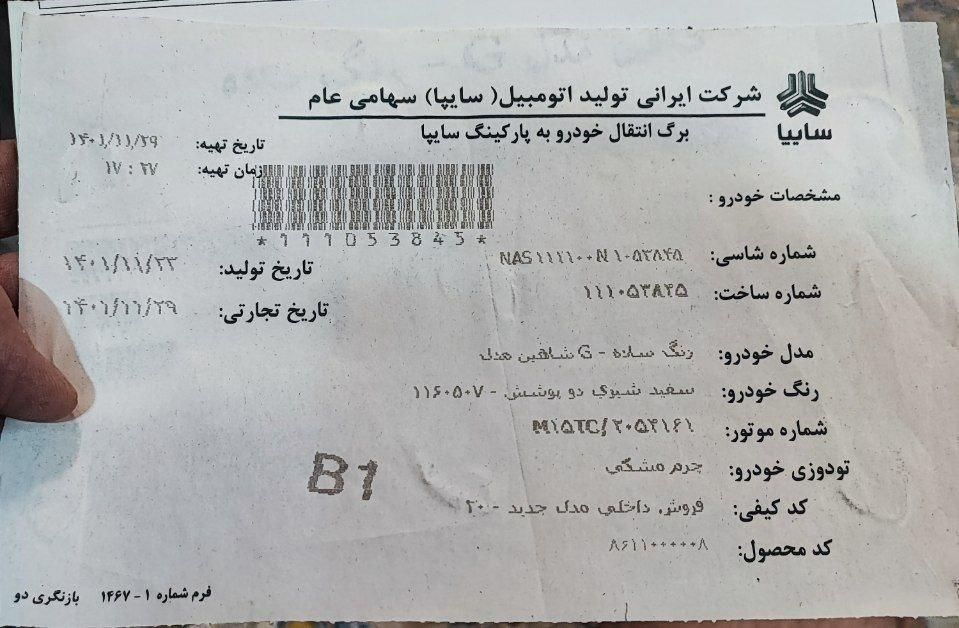 شرکت ایرانی تولید اتومبیل( سایپا) سهامی عام
سایپا
برگ انتقال خودرو به پارکینگ سایپا
تاریخ تهیه: ۱۴۰۱/۱۱/۲۹
زمان تهیه: ۱۷ : ۲۷
مشخصات خودرو :
*111053845*
شماره شاسی: NAS۱۱۱۱۰۰N۱۰۵۳۸۴۵
تاریخ تولید: ۱۴۰۱/۱۱/۲۳
شماره ساخت: ۱۱۱۰۵۳۸۴۵
تاریخ تجارتی: ۱۴۰۱/۱۱/۲۹
مدل خودرو: رنگ ساده - G شاهین مدل
رنگ خودرو: سفید شیری دو پوشش - ۱۱۶۰۵۰۷
شماره موتور: M۱۵TC/۲۰۵۴۱۶۱
تودوزی خودرو: چرم مشکی
B1
کد کیفی: فروش داخلی مدل جدید - ۲۰
کد محصول: ۸۶۱۱۰۰۰۰۰۸
فرم شماره ۱ - ۱۴۶۷ بازنگری دو